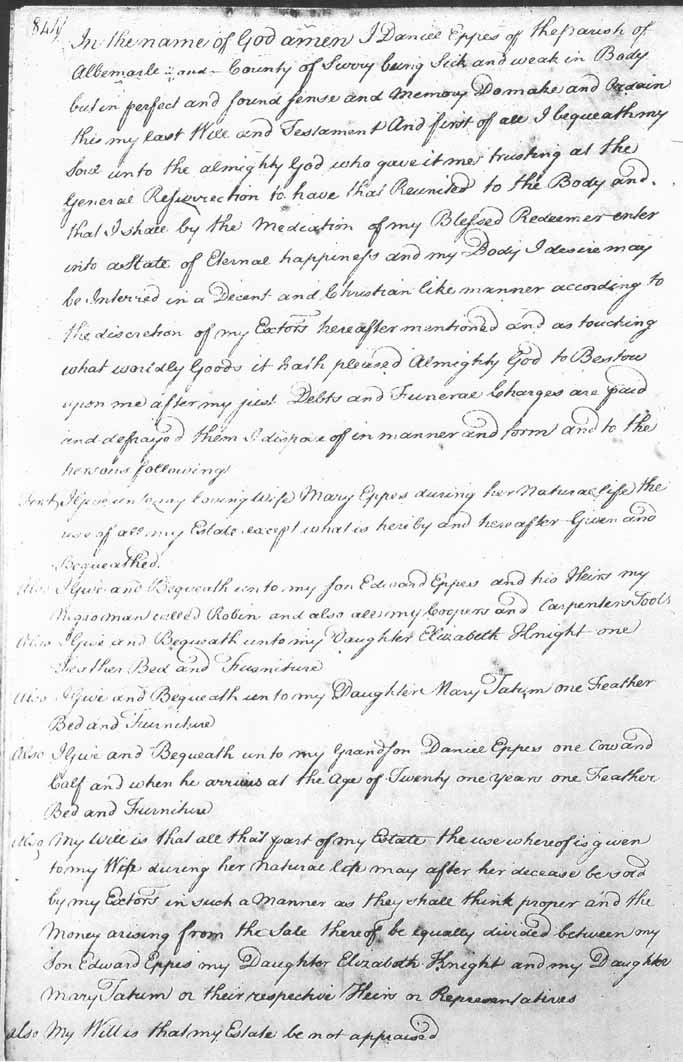 841
In the name of God amen I Daniel Eppes of the parish of
Albemarle and County of Surry being Sick and weak in Body
but in perfect and sound sense and Memory Do make and Ordain
this my last Will and Testament And first of all I bequeath my
Soul unto the almighty God who gave it me trusting at the
General Resurrection to have that Reunited to the Body and
that I shall by the Mediation of my Blessed Redeemer enter
into a State of Eternal happiness and my Body I desire may
be Interred in a Decent and Christian like manner according to
the discretion of my Exctors hereafter mentioned and as touching
what worldly Goods it hath pleased Almighty God to Bestow
upon me after my just Debts and Funeral Charges are paid
and defrayed them I dispose of in manner and form and to the
persons following
I Give unto my loving Wife Mary Eppes during her Natural life the
use of all my Estate except what is hereby and hereafter Given and
Bequeathed.
Also I Give and Bequeath unto my Son Edward Eppes and his Heirs my
Negro man called Robin and also all my Coopers and Carpenters Tools
Also I Give and Bequeath unto my Daughter Elizabeth Knight one
Feather Bed and Furniture
Also I Give and Bequeath unto my Daughter Mary Tatum one Feather
Bed and Furniture
Also I Give and Bequeath unto my Grandson Daniel Eppes one Cow and
Calf and when he arrives at the Age of Twenty one Years one Feather
Bed and Furniture
Also My Will is that all that part of my Estate the use whereof is given
to my Wife during her Natural life may after her decease be sold
by my Exctors in such a Manner as they shall think proper and the
Money arising from the Sale thereof be equally divided between my
Son Edward Eppes my Daughter Elizabeth Knight and my Daughter
Mary Tatum or their respective Heirs or Representatives
also My Will is that my Estate be not appraised